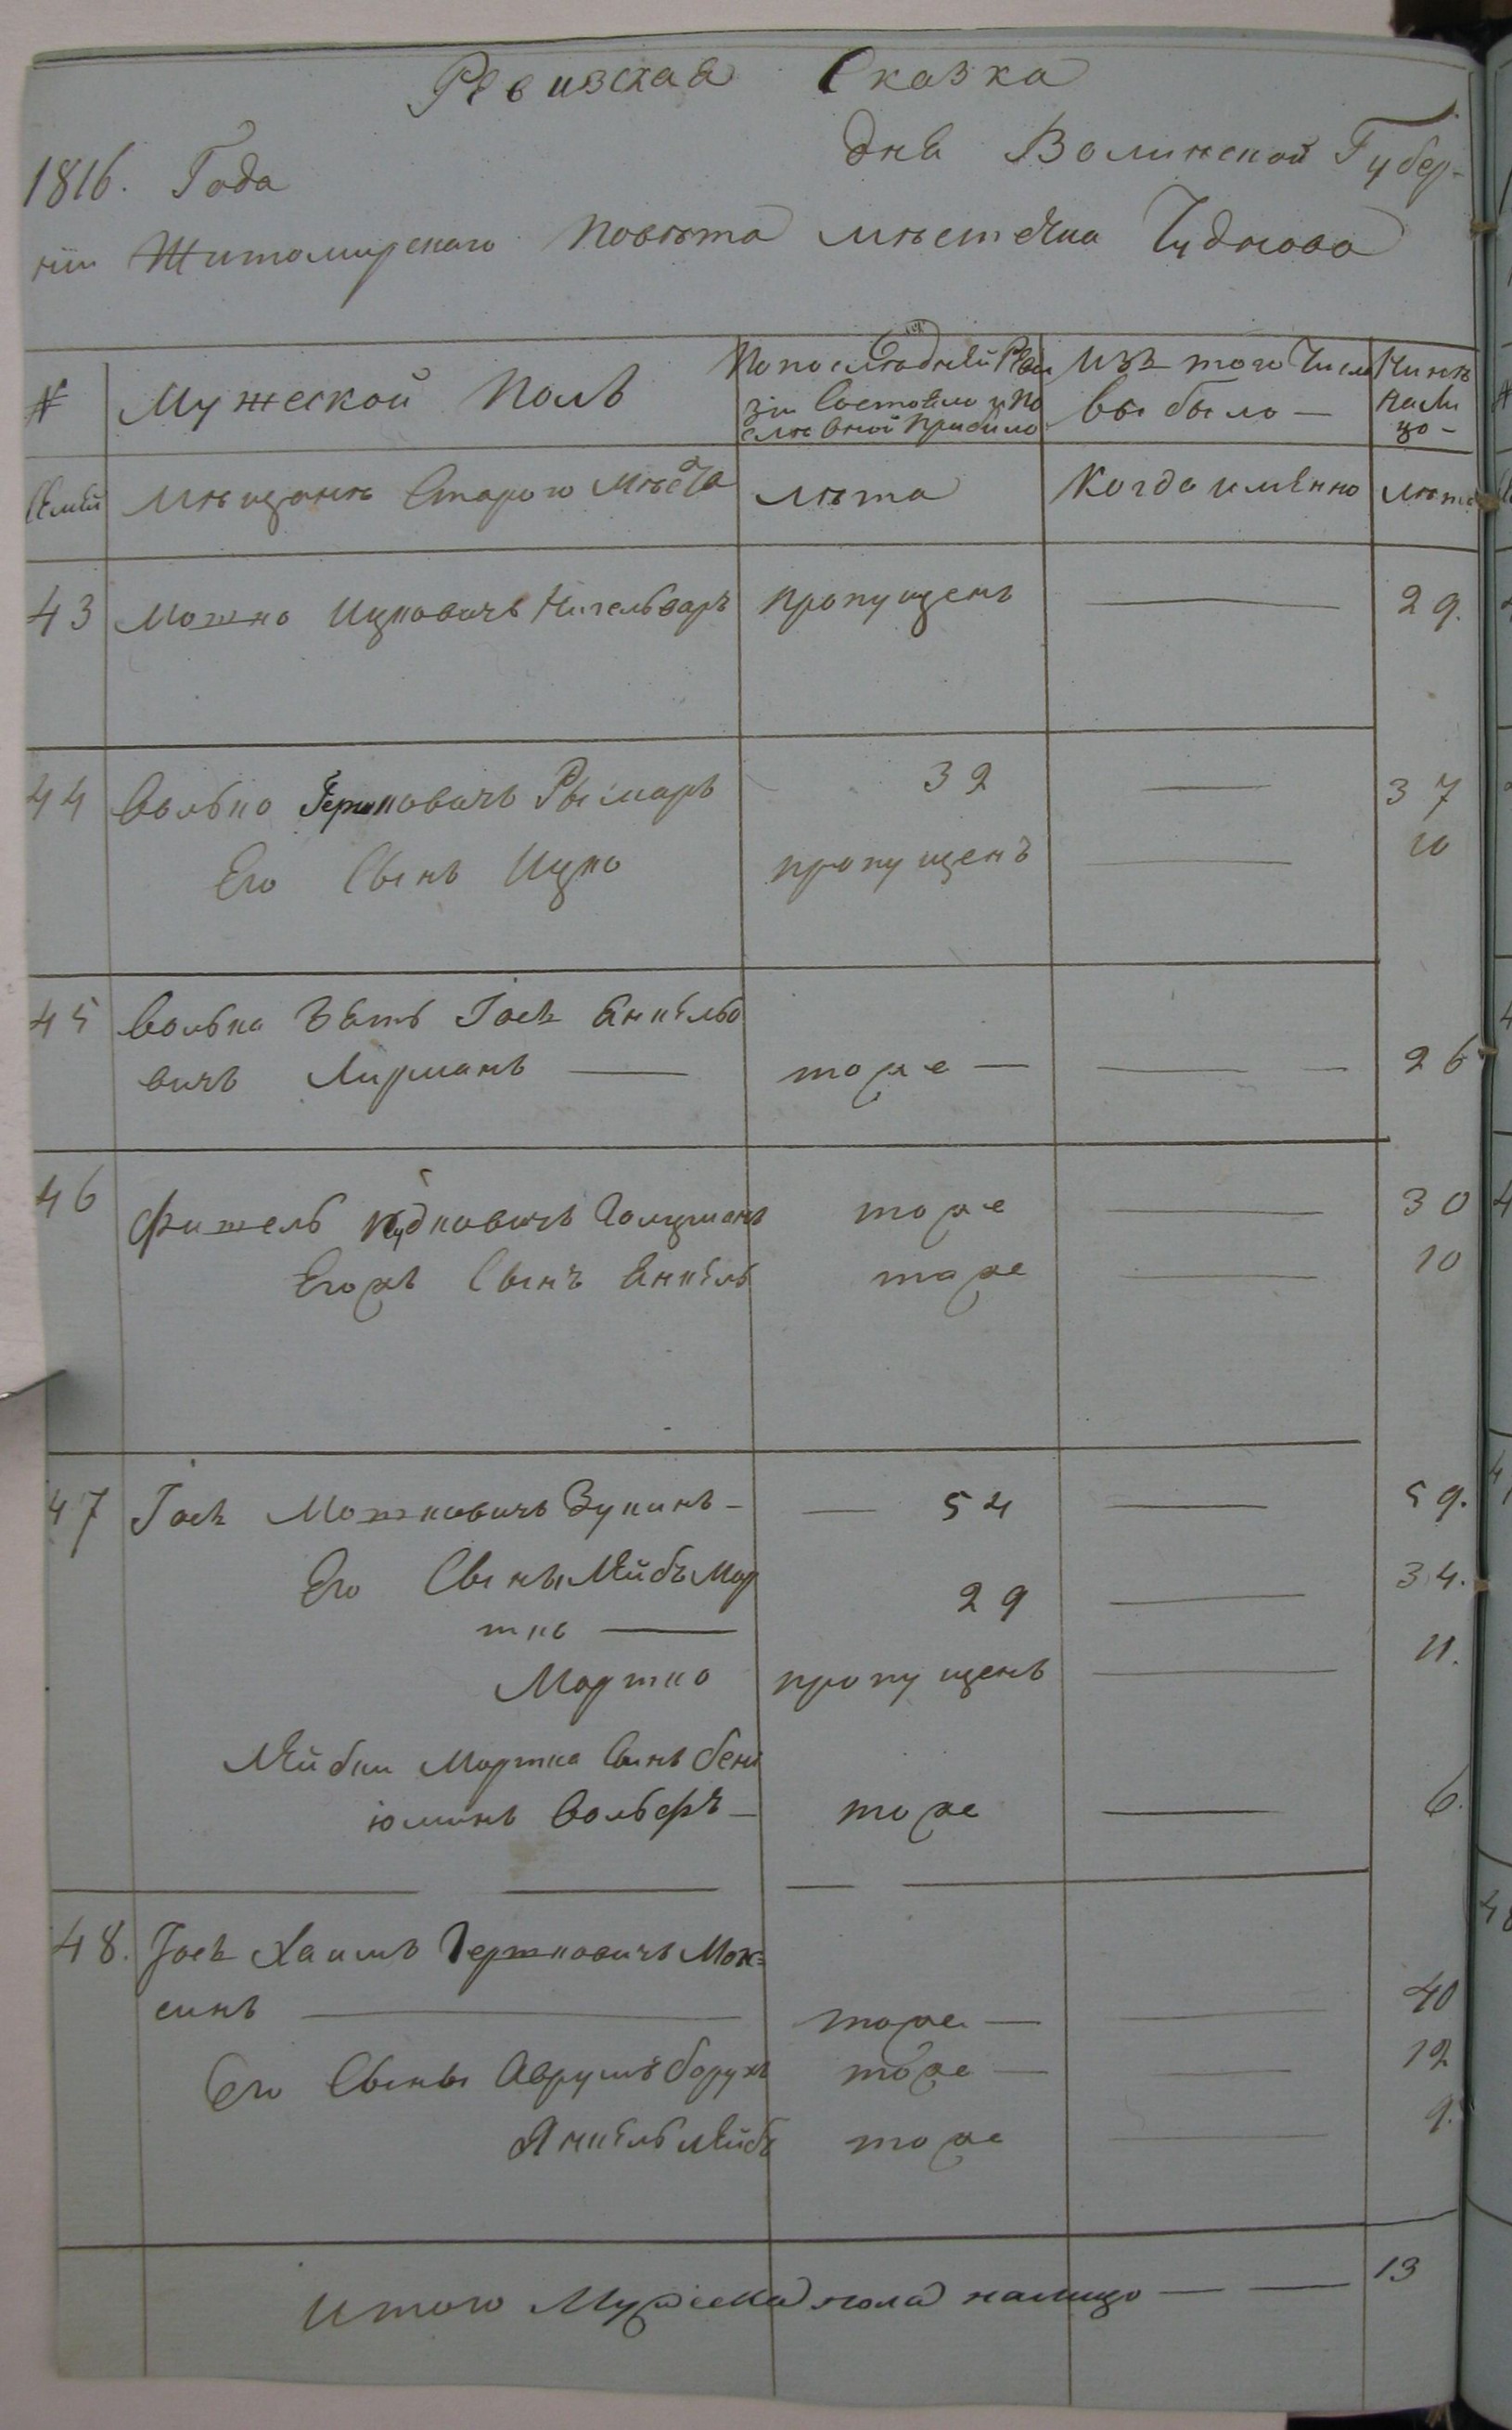 Ревизская Сказка
1816. Года дня Волинской Губер-
нiи Житомирскаго Повѣта мѣстечка Чуднова
№ Мужеской Полъ По последней Реви Изъ того Числа Нинѣ
зiи Состояло и по выбыло — нали
слѣ оной прибило цо —
Семей Мѣщанѣ Старого Мѣста лѣта Когда имѣнно лѣта
43 Мошко Ицковичъ пропущенъ — 29.
44 Волько Гершковичъ Рымарь 32 — 37
Его Сынъ Ицко пропущенъ — 10
45 Волька Зять Iось Янкѣльо
вичъ Лирманъ — тоже — — 26
46 Фишель Юдковичъ Голцманъ тоже — 30
Егожъ Сынъ Янкѣль тоже — 10
47 Iось Мошковичъ Зукинъ — — 54 — 59.
Его Сынъ Лейбъ Мор
тко — 29 — 34.
Мортко пропущенъ — 11.
Лейбки Мортка Сынъ Бени
юминъ Вольфъ — тоже — 6.
48. Iось Хаимъ Гершковичъ Мок=
синъ — тоже — — 40
Его Сыны Аврумъ Борухъ тоже — — 12
Янкѣль Лейбъ тоже — 9.
Итого Мужеска пола налицо — — 13